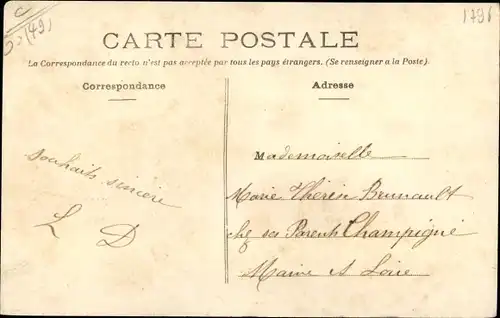 (49)
1791
CARTE POSTALE
La Correspondance du recto n'est pas acceptée par tous les pays étrangers. (Se renseigner a la Poste).
Correspondance
Adresse
Souhaits sincère
L D
Mademoiselle
Marie Thérèse Brunault
chez ses Parents Champigné
Maine et Loire